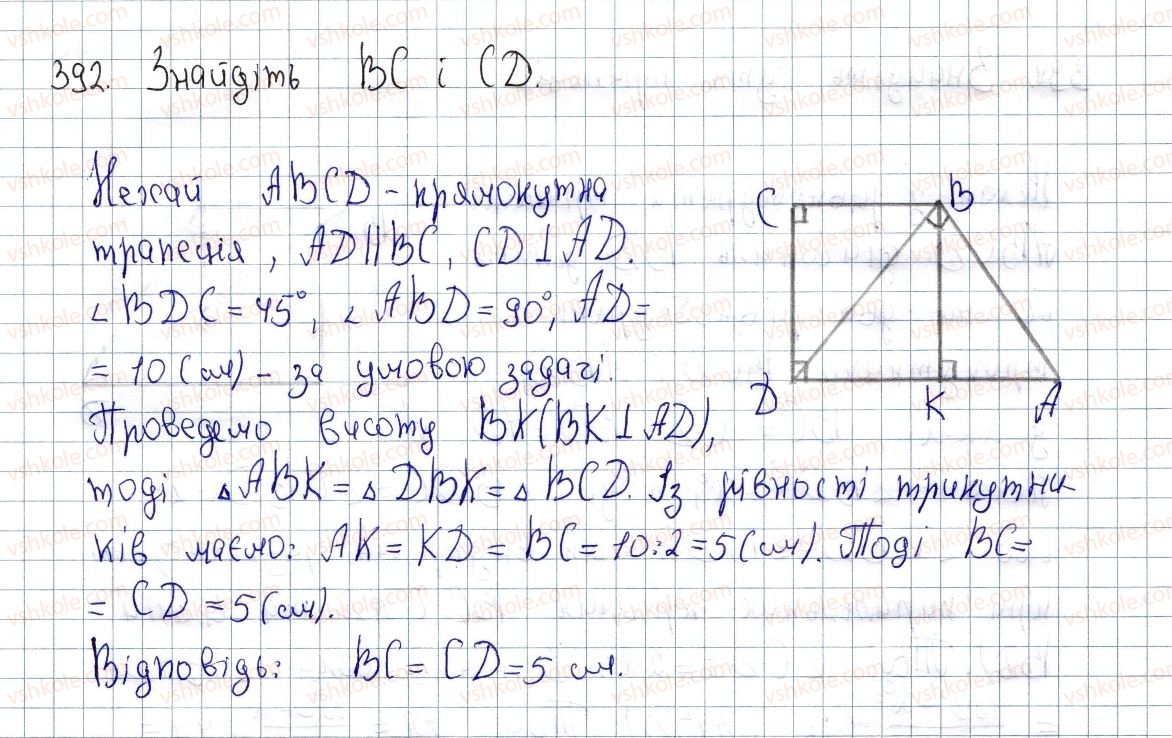 392. Знайдіть BC і CD.
Нехай ABCD - прямокутна
трапеція, AD||BC, CD⊥AD.
∠BDC = 45°, ∠ABD = 90°, AD =
= 10 (см) - за умовою задачі.
Проведемо висоту BK (BK⊥AD),
тоді ΔABK = ΔDBK = ΔBCD. Із рівності трикутни
ків маємо: AK = KD = BC = 10:2 = 5 (см). Тоді BC =
= CD = 5 (см).
Відповідь: BC = CD = 5 см.
C B
D K A